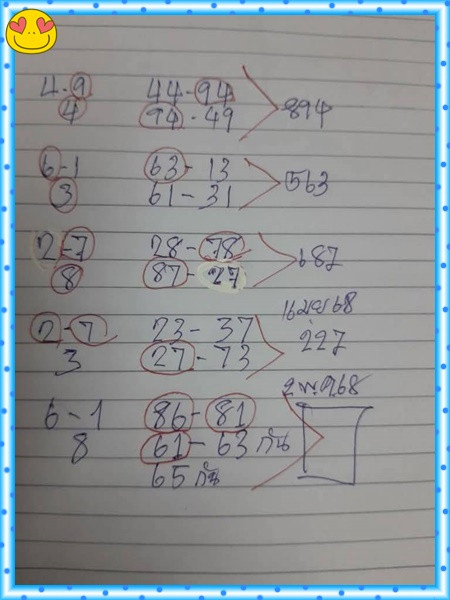 4-9 44-94
4 94-49 894
6-1 63-13
3 61-31 563
2-7 28-78
8 87-27 687
16 เมย 68
2-7 23-37 227
3 27-73
2 พ.ค 68
6-1 86-81
8 61-63 กัน
65 กัน